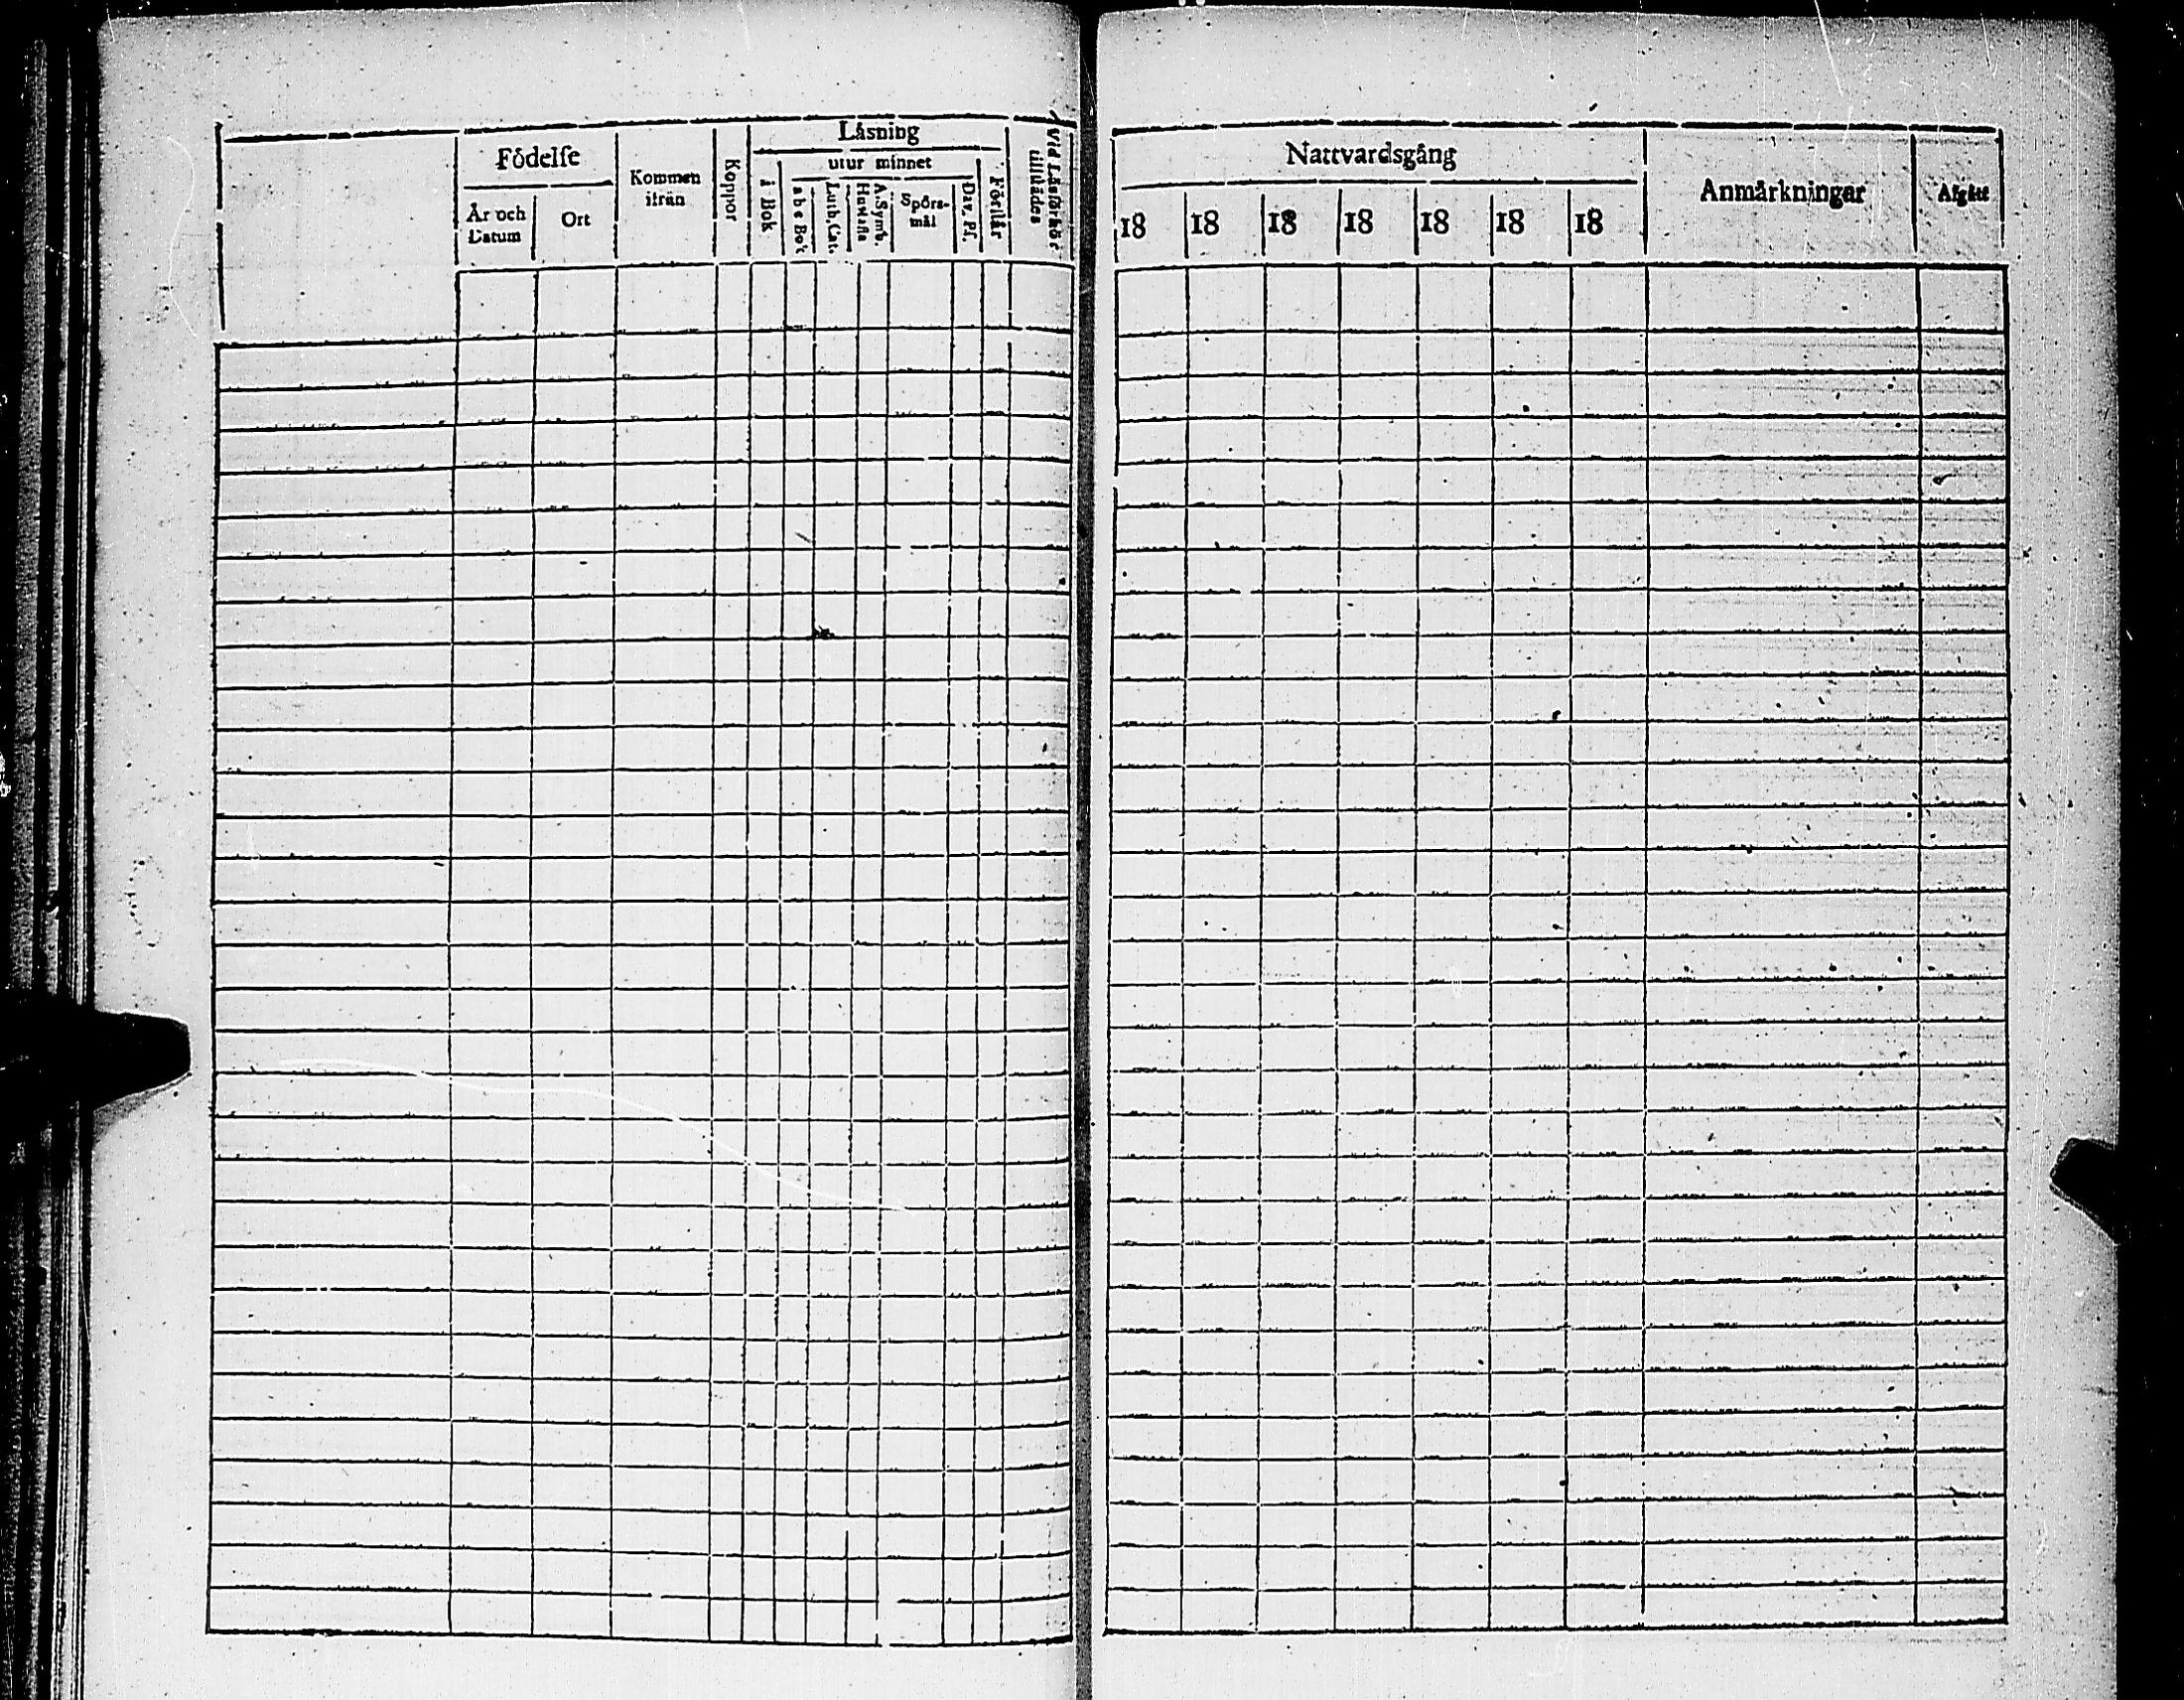 Födelse
År och Datum
Ort
Kommen ifrån
Koppor
Låsning
i Bok
utur minnet
a b c Bok
Luth. Cat.
A. Symb. Hustafla
Spörs-mål
Dav. Ps.
Förstår
Vid Låsförhör tillstådes
Nattvardsgång
18 18 18 18 18 18 18
Anmårkningar
Afgått